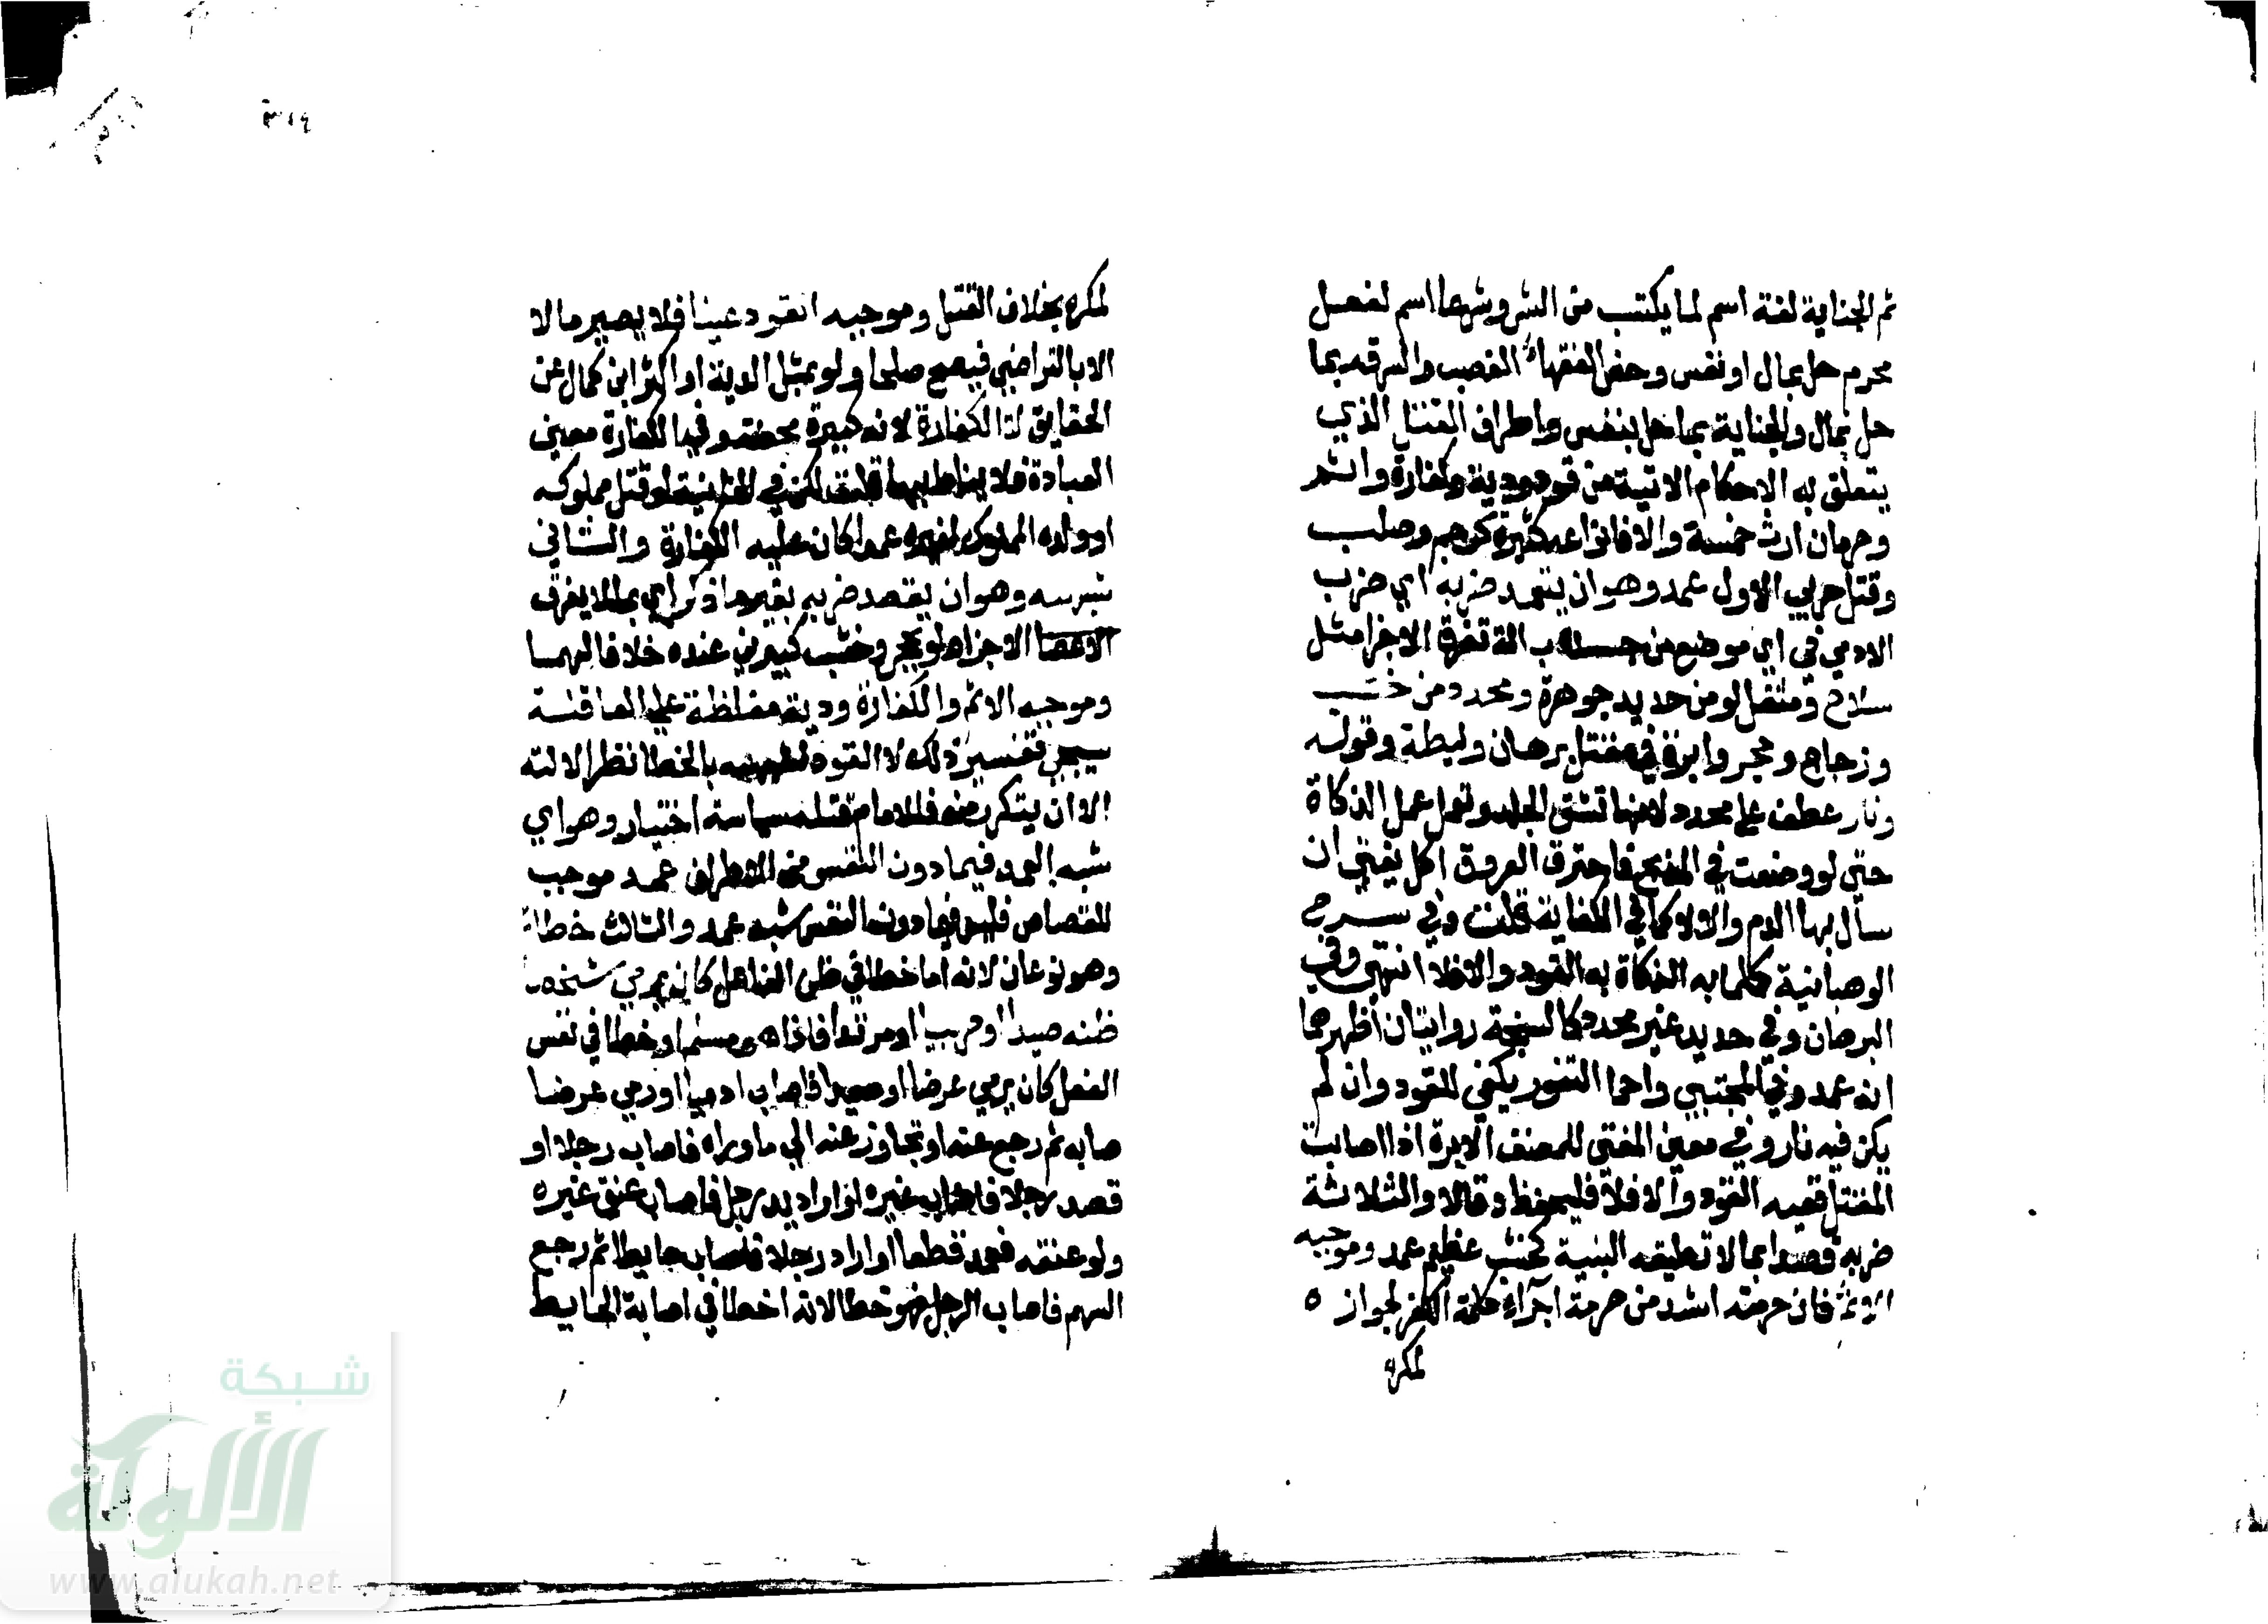 ثم الجناية لغة اسم لما يكتسب من الشر وشرعا اسم لفعل
محرم حل بمال او نفس وخص الفقهاء الغصب والسرقه بما
حل بمال والجناية بما حل بنفس واطراف القتل الذي
يتعلق به الاحكام الاتية من قود ودية وكفارة واثم
وحرمان ارث خمسة والا فانواعه كثيرة كرجم وصلب
وقتل حربي الاول عمد وهو ان يتعمد ضربه اي ضرب
الادمي في اي موضع من جسده ب الة تفرق الاجزا مثل
سلاح ومثقل لو من حديد جوهرة ومحدد من خشب
وزجاج وحجر وابرة في مقتل برهان وليطة وقوله
ونار عطف على محدد لانها تشق الجلد وتعمل عمل الذكاة
حتى لو وضعت في المذبح فاحترق العروق اكل يعني ان
سال بها الدم والا لا كما في الكفاية قلت وفي شرح
الوهبانية كلما به الذكاة به القود والا فلا انتهى وفي
البرهان وفي حديد غير محدد كالسنجة روايتان اظهرهما
انه عمد وفي المجتبى واحما التنور يكفي للقود وان لم
يكن فيه نار وفي معين المفتى للمصنف الابرة اذا اصابت
المقتل ففيه القود والا فلا فليحفظ وقالا والثلاثة
ضربه قصدا بما لا تطيقه البنية كخشب عظيم عمد وموجبه
الاثم فان حرمته اشد من حرمة اجراء كلمة الكفر لجوازه
لمكره
لمكره بخلاف القتل وموجبه القود عينا فلا يصير مالا
الا بالتراضي فيصح صلحا ولو بمثل الدية او اكثر ابن كمال عن
الحقايق لا الكفارة لانه كبيرة محضة وفي الكفارة معنى
العبادة فلا يناط بها قلت لكن في الخانية لو قتل مملوكه
او ولده المملوك لغيره عمدا كان عليه الكفارة والثاني
شبهه وهو ان يقصد ضربه بغير ما ذكر اي بما لا يفرق
الاجزا ولو بحجر وخشب كبيرين عنده خلافا لهما
وموجبه الاثم والكفارة ودية مغلظة على العاقلة
سيجي تفسير ذلك لا القود لشبهه بالخطا نظرا لالته
الا ان يتكرر منه فللامام قتله سياسة اختيار وهو اي
شبه العمد فيما دون النفس من الاطراف عمد موجب
للقصاص فليس فيما دون النفس شبه عمد والثالث خطا
وهو نوعان لانه اما خطا في ظن الفاعل كان يرمي شخصا
ظنه صيدا او حربيا او مرتدا فاذا هو مسلم او خطا في نفس
الفعل كان يرمي غرضا او صيدا فاصاب ادميا او رمي غرضا
صابه ثم رجع عنه او تجاوز عنه الى ما وراه فاصاب رجلا او
قصد رجلا فاصاب غيره او اراد يد رجل فاصاب عنق غيره
ولو عنقه فعمد قطعا او اراد رجلا فاصاب حايطا ثم رجع
السهم فاصاب الرجل فهو خطا لانه اخطا في اصابة الحايط
شبكة
الألوكة
www.alukah.net